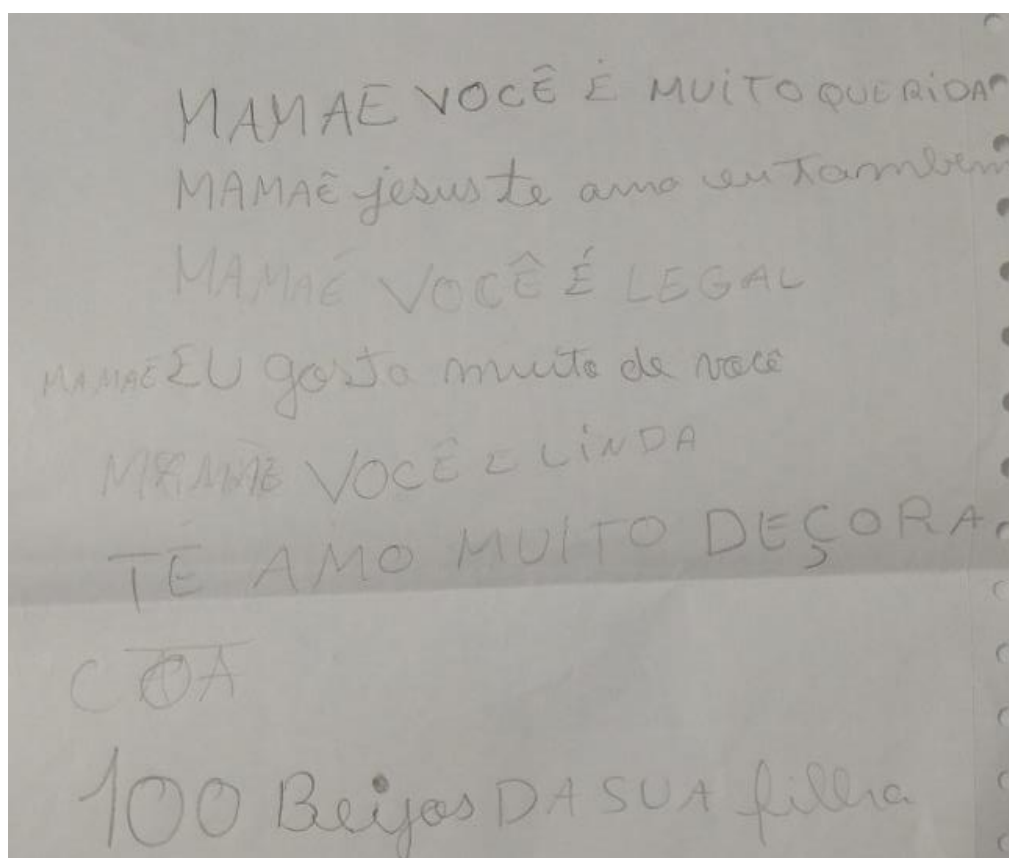 MAMAE VOCÊ É MUITO QUERIDA
MAMAÊ jesus te amo eu tambem
MAMAÉ VOCÊ É LEGAL
MAMAÊ EU gosto muito de você
MAMAE VOCÊ E LINDA
TE AMO MUITO DEÇORA
COA
100 Beijos DA SUA filha